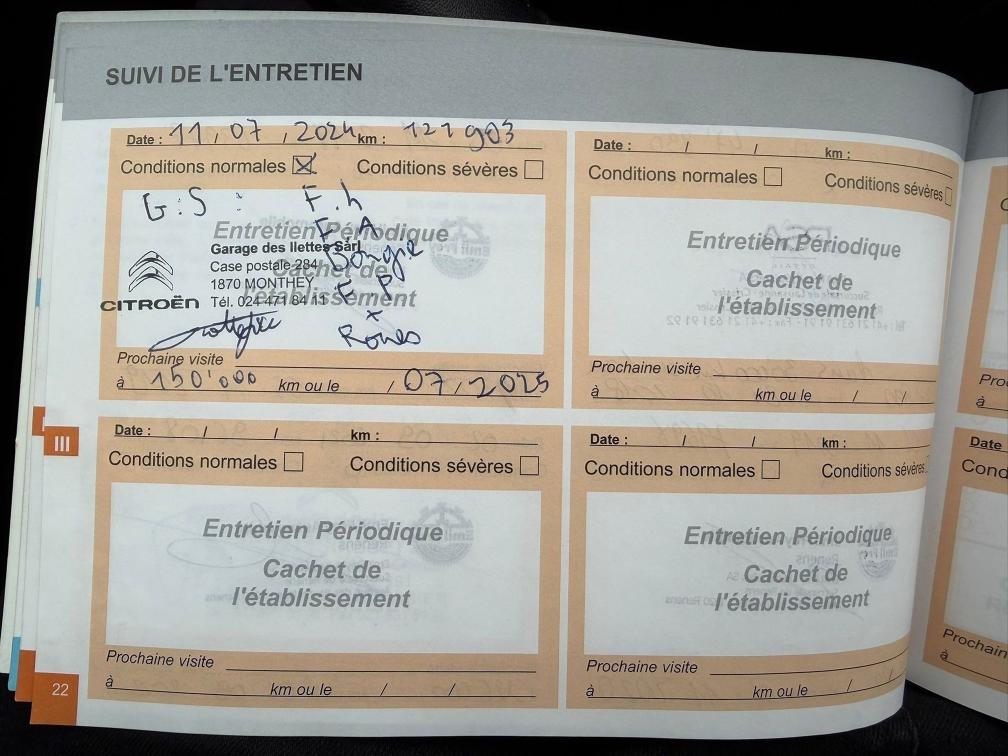 SUIVI DE L'ENTRETIEN
Date : 11 / 07 / 2024 km : 121 903
Conditions normales ☒ Conditions sévères ☐
G.S : F.h
Entretien Périodique
F A
Garage des Ilettes Sàrl
Bougie
Case postale 284
Cachet de
1870 MONTHEY
l'établissement
CITROËN Tél. 024 471 84 11
F P
x
Roues
Prochaine visite
à 150'000 km ou le / 07 / 2025
Date : / / km :
Conditions normales ☐ Conditions sévères ☐
Entretien Périodique
Cachet de
l'établissement
Prochaine visite
à km ou le / /
Date : / / km :
Conditions normales ☐ Conditions sévères ☐
Entretien Périodique
Cachet de
l'établissement
Prochaine visite
à km ou le / /
Date : / / km :
Conditions normales ☐ Conditions sévères
Entretien Périodique
Cachet de
l'établissement
Prochaine visite
à km ou le / /
III
22
à
Date
Prochain
à